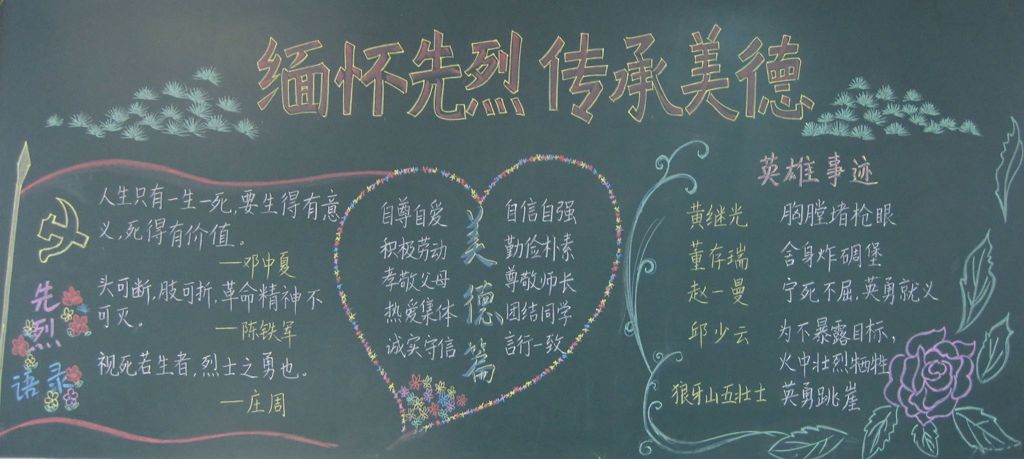 缅怀先烈 传承美德
先烈
语录
人生只有一生一死,要生得有意
义,死得有价值。
—邓中夏
头可断,肢可折,革命精神不
可灭。
—陈铁军
视死若生者,烈士之勇也。
—庄周
美德篇
自尊自爱
积极劳动
孝敬父母
热爱集体
诚实守信
自信自强
勤俭朴素
尊敬师长
团结同学
言行一致
英雄事迹
黄继光 胸膛堵枪眼
董存瑞 舍身炸碉堡
赵一曼 宁死不屈,英勇就义
邱少云 为不暴露目标,
火中壮烈牺牲
狼牙山五壮士 英勇跳崖